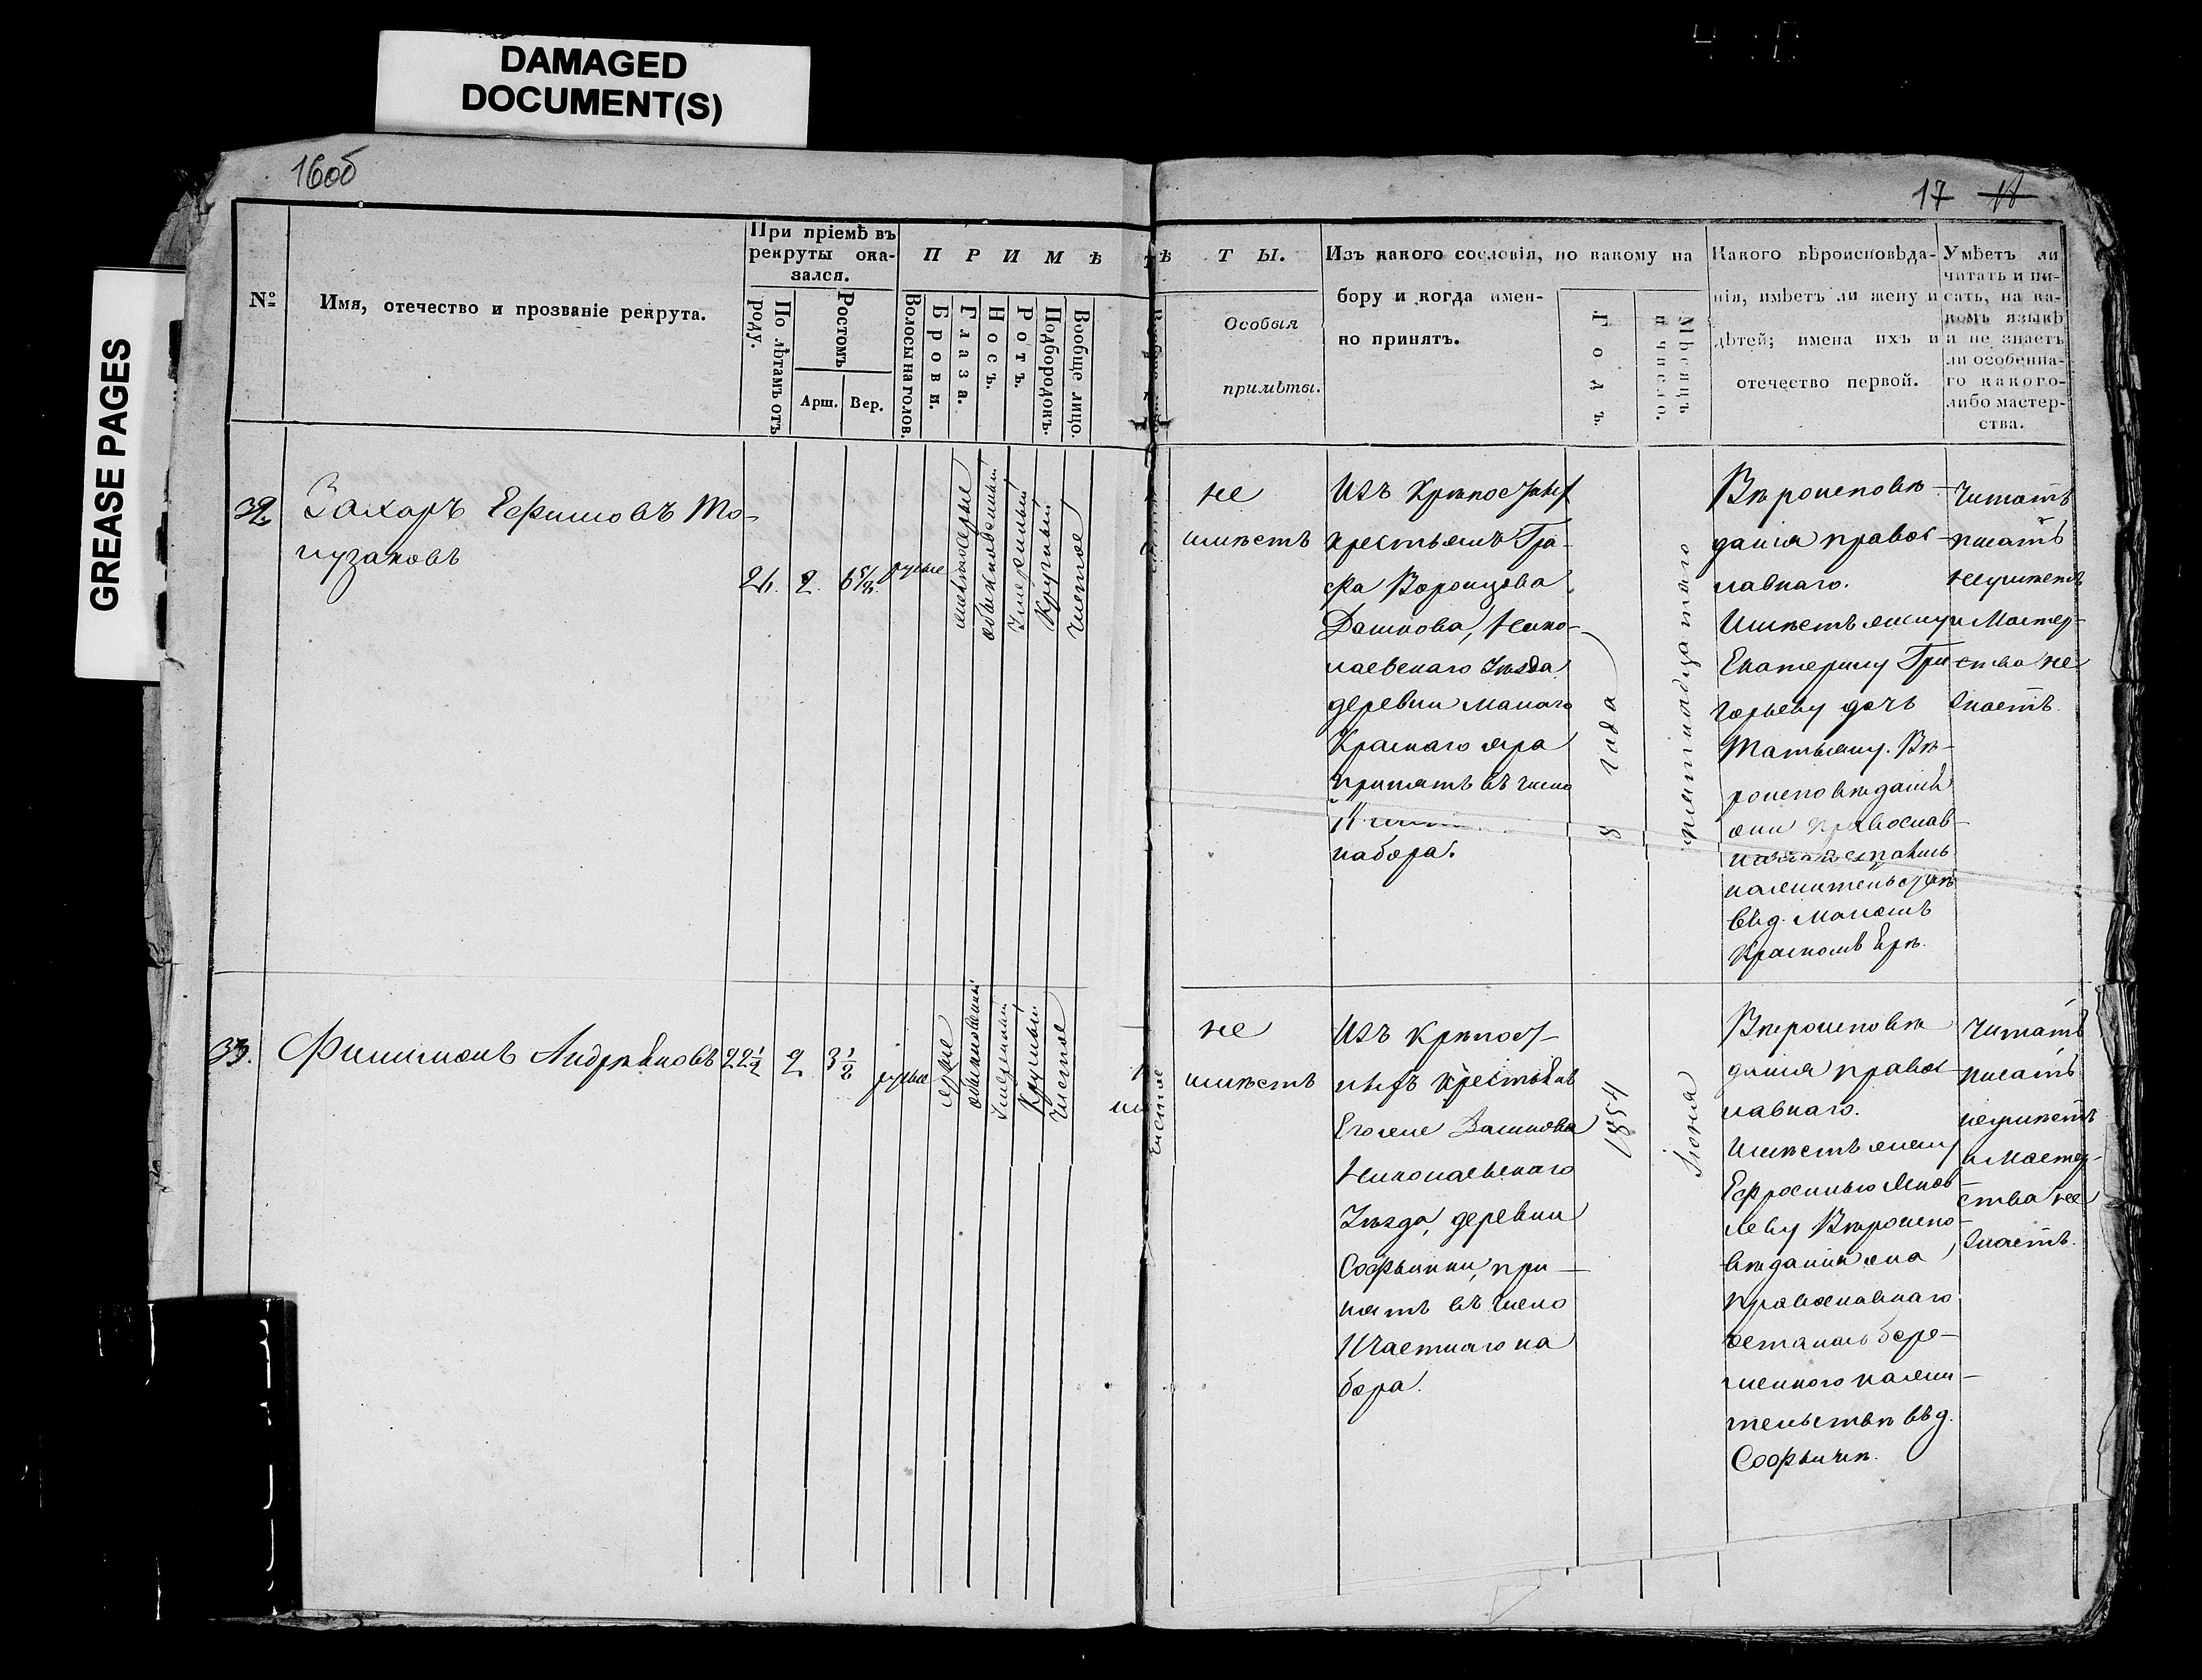 DAMAGED
DOCUMENT(S)
GREASE PAGES
16об
17
№
Имя, отечество и прозваніе рекрута.
При пріемѣ въ
рекруты ока-
зался.
По лѣтамъ отъ
роду.
Ростомъ
Арш.
Вер.
П Р И М Ѣ
Волосы на голов.
Брови.
Глаза.
Носъ.
Ротъ.
Подбородокъ.
Вообще лицо.
Т Ы.
Особыя
примѣты.
Изъ какого сословія, по какому на
бору и когда имен-
но принятъ.
Годъ.
Мѣсяцъ
и число.
Какого вѣроисповѣда-
нія, имѣетъ ли жену и
дѣтей; имена ихъ и
отечество первой.
Умѣетъ ли
читать и пи-
сать, на ка-
комъ языкѣ
и не знаетъ
ли особенна-
го какого-
либо мастер-
ства.
32.
Захаръ Ефимовъ
2
русые
обыкновенный
умеренный
Круглый
чистое
не
имѣетъ
Изъ Крѣпостныхъ
крестьянъ Гра-
фа Воронцова
Дашкова, Нико-
лаевскаго Уѣзда
деревни Малаго
Краснаго яра
принятъ въ число
набора.
года
пятнадцатаго
Вѣроисповѣ-
данія правос-
лавнаго.
Имѣетъ жену
Екатерину Гри
горьеву дочь
Татьяну. Вѣ-
роисповѣданія
они Православ-
наго остались
нажительствѣ
въ д. Маломъ
Красномъ Ярѣ.
Читать
писать
неумѣетъ
и Мастер-
ства не
знаетъ.
33.
Филимонъ Андрѣяновъ
22½
2
3½
русые
серые
обыкновенный
умеренный
Круглый
Чистое
не
имѣетъ
Изъ крѣпост-
ныхъ крестьянъ
Егоже Дашкова
Николаевскаго
Уѣзда, деревни
Софьинки, при-
нятъ въ число
II частнаго на
бора.
1854
Іюня
Вѣроисповѣ
данія правос-
лавнаго.
Имѣетъ жену
Ефросинью Яков
леву Вѣроиспо-
вѣданія она
православнаго
осталась бере-
менного нажи-
тельствѣ въ д.
Софьинкѣ.
Читать
писать
неумѣетъ
и Мастер-
ства не
знаетъ.